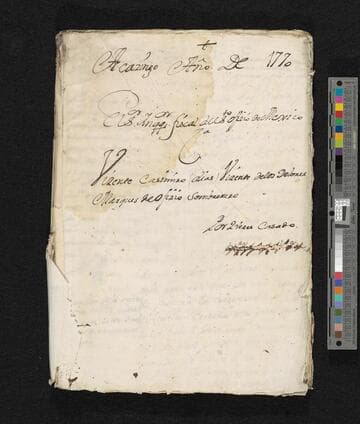 Acazingo Año De 1770
El Sr. Inqor fiscal del Sto ofiio de Mexico
Ca
Vizente Casimiro alias Vizente de los Dolores
Marques de ofizio Sombrerero
Por Dies Casado.